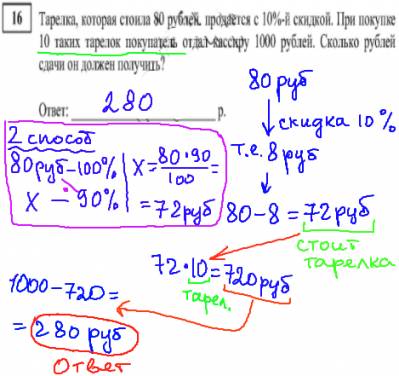 16
Тарелка, которая стоила 80 рублей, продаётся с 10%-й скидкой. При покупке
10 таких тарелок покупатель отдал кассиру 1000 рублей. Сколько рублей
сдачи он должен получить?
Ответ: 280 р.
80 руб
скидка 10%
т.е. 8 руб
80-8=72 руб
стоит
тарелка
2 способ
80 руб-100%
X - 90%
X = 80·90
100 =
= 72 руб
72·10=720 руб
тарел.
1000-720=
= 280 руб
Ответ